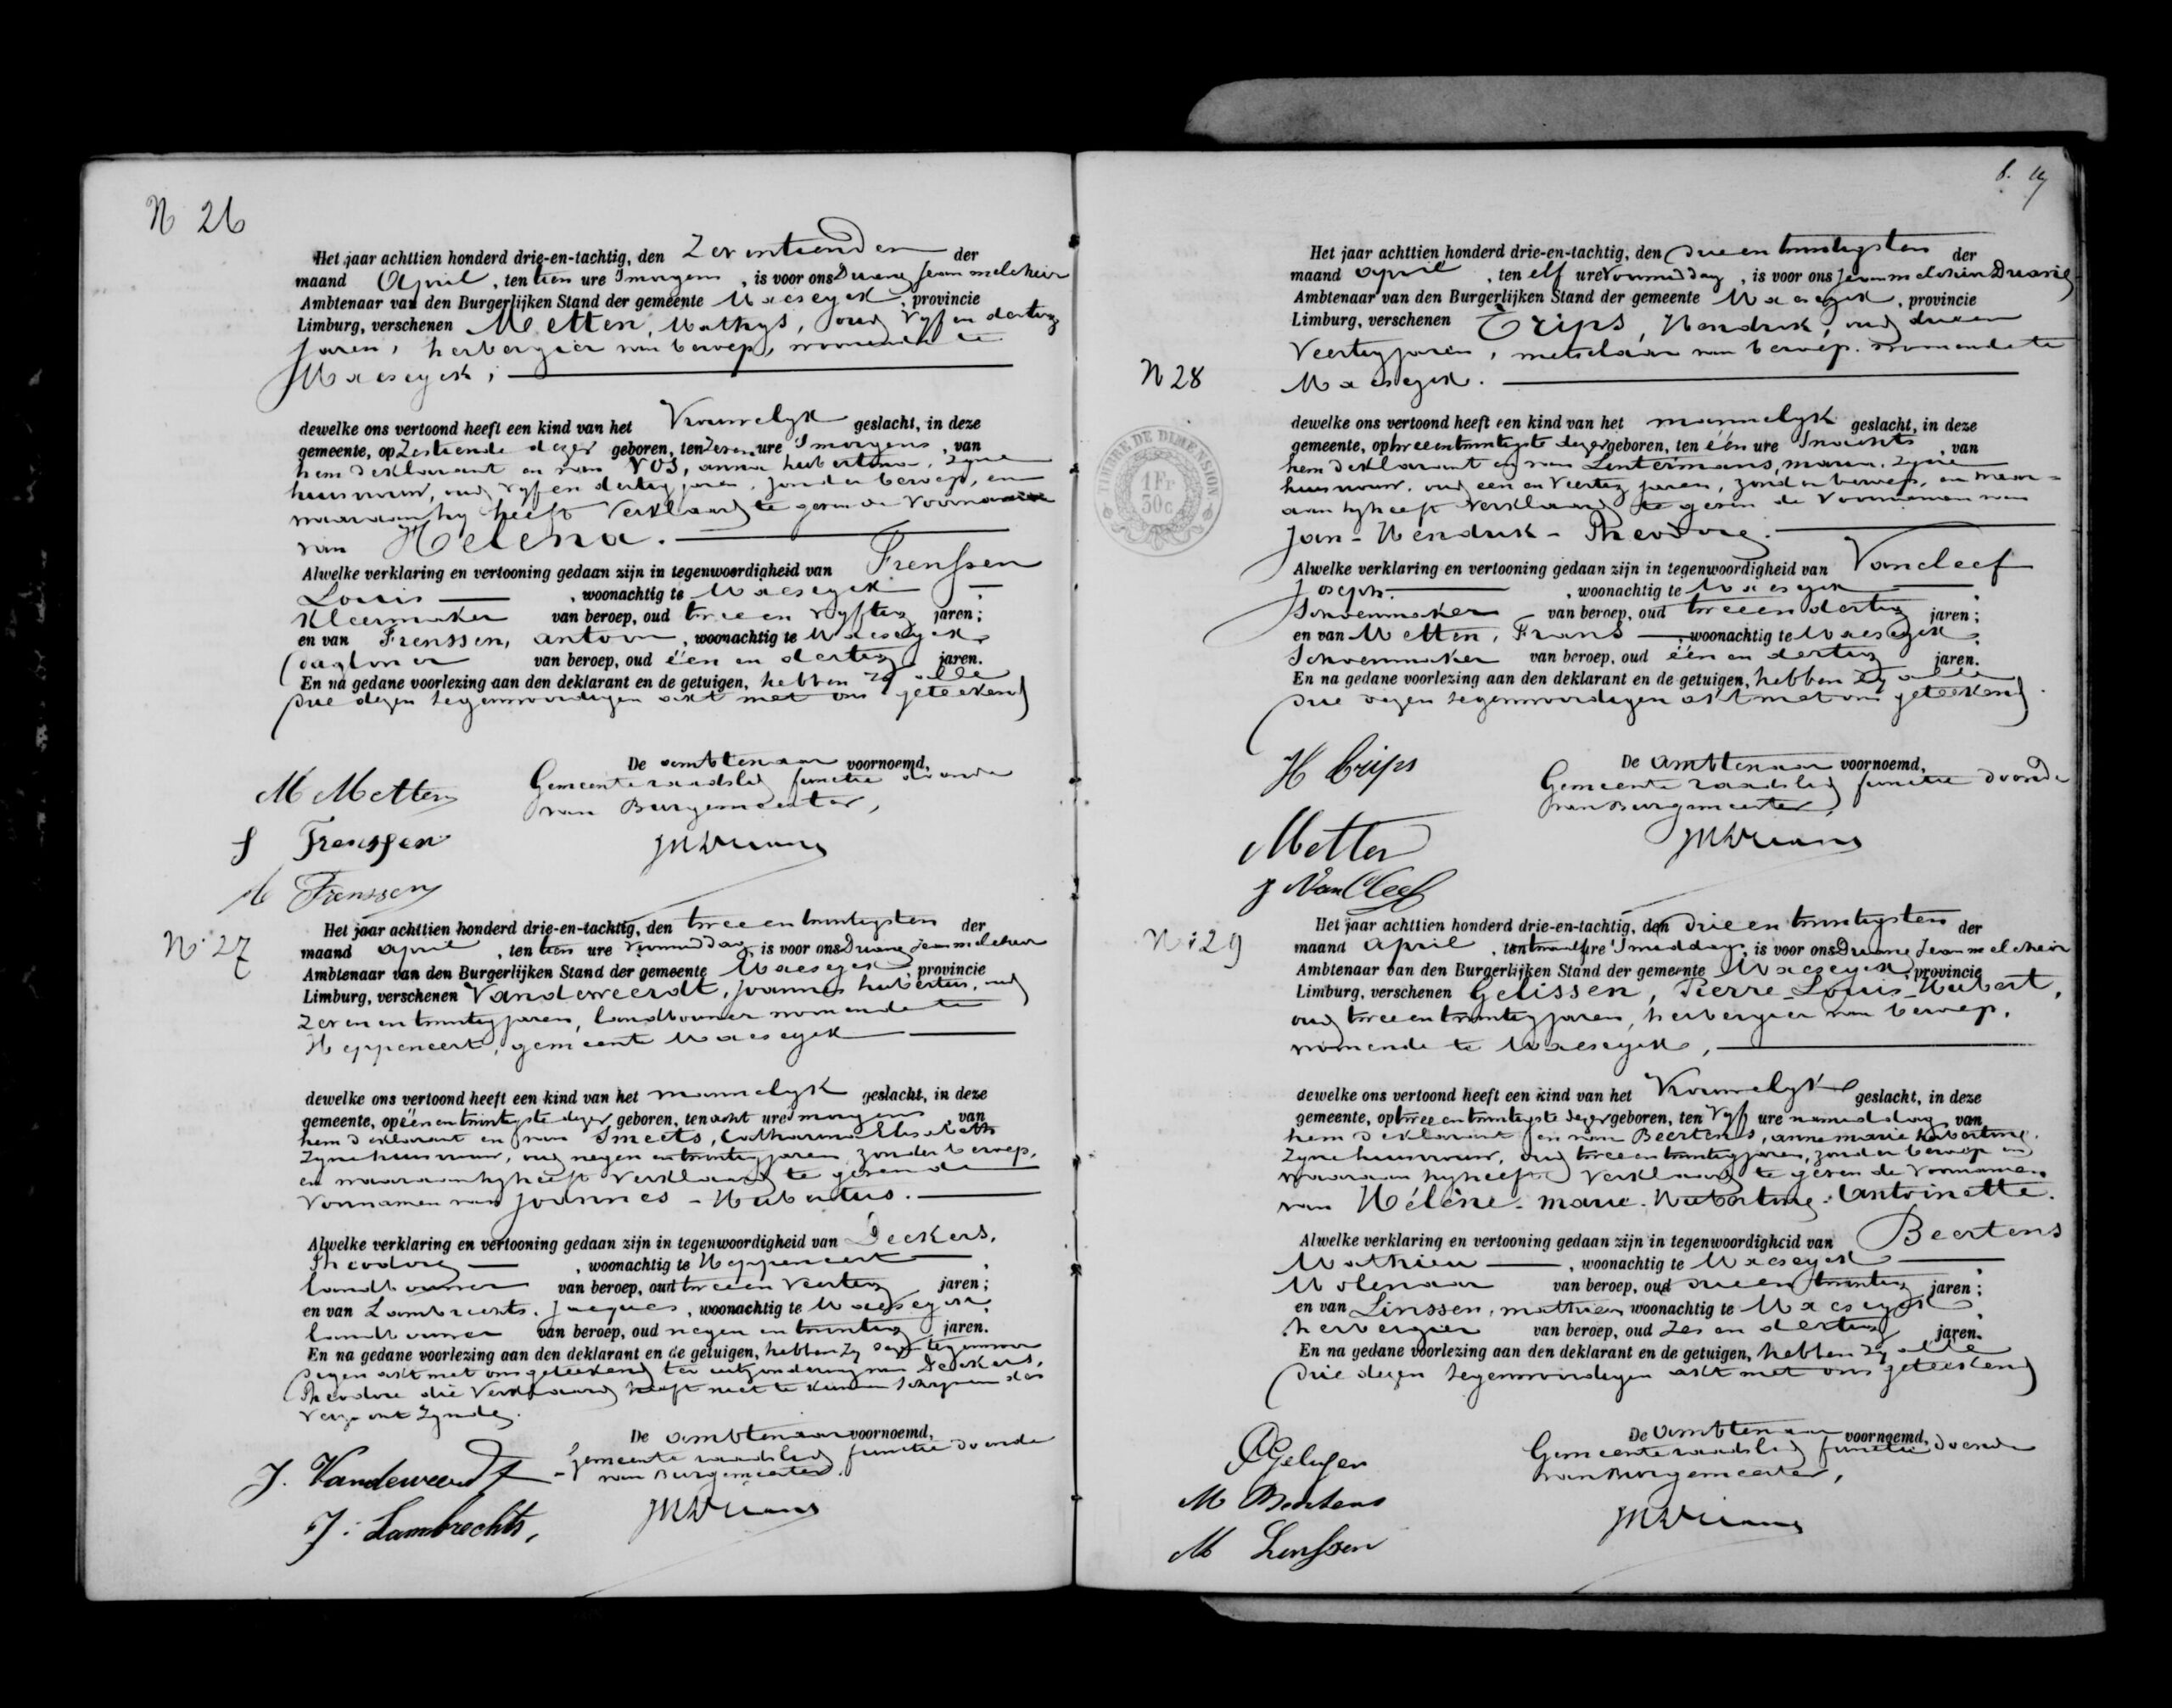 N 26
Het jaar achttien honderd drie-en-tachtig, den Zeventienden der
maand April, ten tien ure Smorgens, is voor ons Driane Jean melchior
Ambtenaar van den Burgerlijken Stand der gemeente Maeseyck, provincie
Limburg, verschenen Metten, Mathys, oud Vyf en dertig
Jaren, herbergier van beroep, woonende te
Maeseyck,
dewelke ons vertoond heeft een kind van het Vrouwelyk geslacht, in deze
gemeente, op Zestiende dezer geboren, ten Zeven ure Smorgens, van
hem deklarant en van Vos, anna hubertina, zyne
huisvrouw, oud vyf en dertig jaren, zonder beroep, en
waaraan hy heeft verklaard te geven de Voornamen
van Helena.
Alwelke verklaring en vertooning gedaan zijn in tegenwoordigheid van Frenssen
Louis, woonachtig te Maeseyck
Kleermaker van beroep, oud twee en vyftig jaren;
en van Frenssen, antoon, woonachtig te Maeseyck,
dagloner van beroep, oud één en dertig jaren.
En na gedane voorlezing aan den deklarant en de getuigen, hebben zy alle
drie dezen tegenwoordigen akt met ons geteekend
De ambtenaar voornoemd,
Gemeente raadslid functie doende
van Burgemeester,
M Metten
Frenssen
Frenssen
N° 27
Het jaar achttien honderd drie-en-tachtig, den twee en twintigsten der
maand april, ten tien ure voormiddag, is voor ons Driane Jean melchior
Ambtenaar van den Burgerlijken Stand der gemeente Maeseyck, provincie
Limburg, verschenen Vandeweerdt, Joannes hubertus, oud
Zeven en twintig jaren, landbouwer woonende te
Heppeneert, gemeente Maeseyck
dewelke ons vertoond heeft een kind van het mannelyk geslacht, in deze
gemeente, op één en twintigste dezer geboren, ten acht ure smorgens, van
hem deklarant en van Smeets, Catharina Elisabeth
zyne huisvrouw, oud negen en twintig jaren zonder beroep,
en waaraan hy heeft verklaard te geven de
Voornamen van Joannes - Hubertus.
Alwelke verklaring en vertooning gedaan zijn in tegenwoordigheid van Deckers,
Theodore, woonachtig te Heppeneert
landbouwer van beroep, oud twee en veertig jaren;
en van Lambrechts, Jacques, woonachtig te Maeseyck,
landbouwer van beroep, oud negen en twintig jaren.
En na gedane voorlezing aan den deklarant en de getuigen, hebben zy deze tegenwoor
digen akt met ons geteekend ter uitzondering van Deckers,
Theodore die verklaard heeft niet te kunnen schryven des
verzocht zynde.
De ambtenaar voornoemd,
Gemeente raadslid functie doende
van Burgemeester.
J. Vandeweerdt
J: Lambrechts,
N 28
TIMBRE DE DIMENSION
1 Fr
50 c
Het jaar achttien honderd drie-en-tachtig, den drie en twintigsten der
maand april, ten elf ure Voormiddag, is voor ons Jean melchior Driane
Ambtenaar van den Burgerlijken Stand der gemeente Maeseyck, provincie
Limburg, verschenen Trips, Hendrik, oud drie en
Veertig jaren, metselaar van beroep, woonende te
Maeseyck.
dewelke ons vertoond heeft een kind van het mannelyk geslacht, in deze
gemeente, op twee en twintigste dezer geboren, ten één ure Snachts, van
hem deklarant en van Lintermans, maria, zyne
huisvrouw, oud een en veertig jaren, zonder beroep, en waar=
aan hy heeft verklaard te geven de Voornamen van
Jan - Hendrik - Theodore.
Alwelke verklaring en vertooning gedaan zijn in tegenwoordigheid van Vancleef
Joseph, woonachtig te Maeseyck
Schoenmaker van beroep, oud twee en dertig jaren;
en van Metten, Frans, woonachtig te Maeseyck,
Schoenmaker van beroep, oud één en dertig jaren.
En na gedane voorlezing aan den deklarant en de getuigen, hebben zy alle
drie dezen tegenwoordigen akt met ons geteekend.
De Ambtenaar voornoemd,
Gemeente raadslid functie doende
van Burgemeester,
H Trips
Metten
J VanCleef
N: 29
Het jaar achttien honderd drie-en-tachtig, den drie en twintigsten der
maand April, ten twaalf ure Smiddags, is voor ons Driane Jean melchior
Ambtenaar van den Burgerlijken Stand der gemeente Maeseyck, provincie
Limburg, verschenen Gelissen, Pierre - Louis - Hubert,
oud twee en twintig jaren, herbergier van beroep,
woonende te Maeseyck,
dewelke ons vertoond heeft een kind van het Vrouwelyk geslacht, in deze
gemeente, op twee en twintigste dezer geboren, ten vyf ure namiddag, van
hem deklarant en van Beertens, anne marie hubertine,
zyne huisvrouw, oud twee en twintig jaren, zonder beroep en
waaraan hy heeft verklaard te geven de Voornamen
van Hélène - marie - Hubertine - Antoinette.
Alwelke verklaring en vertooning gedaan zijn in tegenwoordigheid van Beertens
Mathieu, woonachtig te Maeseyck
Molenaar van beroep, oud drie en twintig jaren;
en van Linssen, mathieu, woonachtig te Maeseyck,
herbergier van beroep, oud zes en dertig jaren.
En na gedane voorlezing aan den deklarant en de getuigen, hebben zy alle
drie dezen tegenwoordigen akt met ons geteekend
De Ambtenaar voornoemd,
Gemeente raadslid functie doende
van Burgemeester,
Gelissen
M Beertens
M Linssen